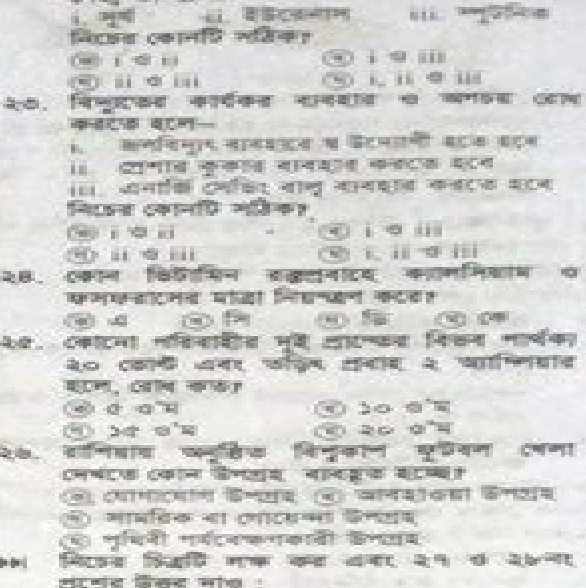 i. সূর্য ii. ইউরেনাস iii. স্পুটনিক
নিচের কোনটি সঠিক?
ক i ও ii খ i ও iii
গ ii ও iii ঘ i, ii ও iii
২৩. বিদ্যুতের কার্যকর ব্যবহার ও অপচয় রোধ
করতে হলে—
i. জলবিদ্যুৎ ব্যবহারে উদ্যোগী হতে হবে
ii. প্রেশার কুকার ব্যবহার করতে হবে
iii. এনার্জি সেভিং বাল্ব ব্যবহার করতে হবে
নিচের কোনটি সঠিক?
ক i ও ii খ i ও iii
গ ii ও iii ঘ i, ii ও iii
২৪. কোন ভিটামিন রক্তপ্রবাহে ক্যালসিয়াম ও
ফসফরাসের মাত্রা নিয়ন্ত্রণ করে?
ক এ খ সি গ ডি ঘ কে
২৫. কোনো পরিবাহীর দুই প্রান্তের বিভব পার্থক্য
২০ ভোল্ট এবং তড়িৎ প্রবাহ ২ অ্যাম্পিয়ার
হলে, রোধ কত?
ক ৫ ও'ম খ ১০ ও'ম
গ ১৫ ও'ম ঘ ২০ ও'ম
২৬. রাশিয়ায় অনুষ্ঠিত বিশ্বকাপ ফুটবল খেলা
দেখতে কোন উপগ্রহ ব্যবহৃত হচ্ছে?
ক যোগাযোগ উপগ্রহ খ আবহাওয়া উপগ্রহ
গ সামরিক বা গোয়েন্দা উপগ্রহ
ঘ পৃথিবী পর্যবেক্ষণকারী উপগ্রহ
নিচের চিত্রটি লক্ষ কর এবং ২৭ ও ২৮নং
প্রশ্নের উত্তর দাও :